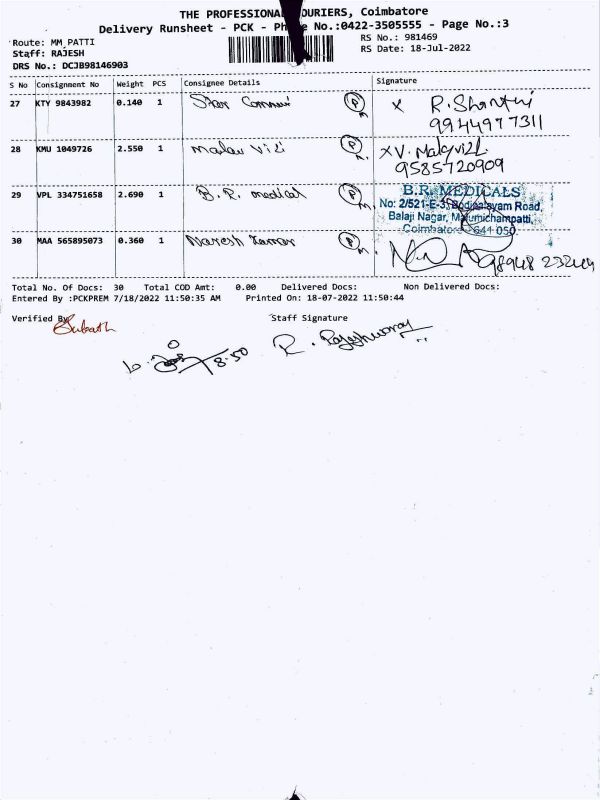 THE PROFESSIONAL COURIERS, Coimbatore
Delivery Runsheet - PCK - Phone No.:0422-3505555 - Page No.:3
Route: MM_PATTI
RS No.: 981469
Staff: RAJESH
RS Date: 18-Jul-2022
DRS No.: DCJB98146903
S No Consignment No Weight PCS Consignee Details Signature
27 KTY 9843982 0.140 1 Star P R. Shanthi
9944977311
28 KMU 1049726 2.550 1 Malar Vizi P X V. Malarvizi
9585720909
29 VPL 334751658 2.690 1 B. R. medical P B.R. MEDICALS
No: 2/521-E-3, Road,
Balaji Nagar, Malumichampatti,
Coimbatore - 641 050
30 MAA 565895073 0.360 1 Naresh Kumar P
98948 23249
Total No. Of Docs: 30 Total COD Amt: 0.00 Delivered Docs: Non Delivered Docs:
Entered By :PCKPREM 7/18/2022 11:50:35 AM Printed On: 18-07-2022 11:50:44
Verified By
Staff Signature
R. Rajeshwaray
8.50